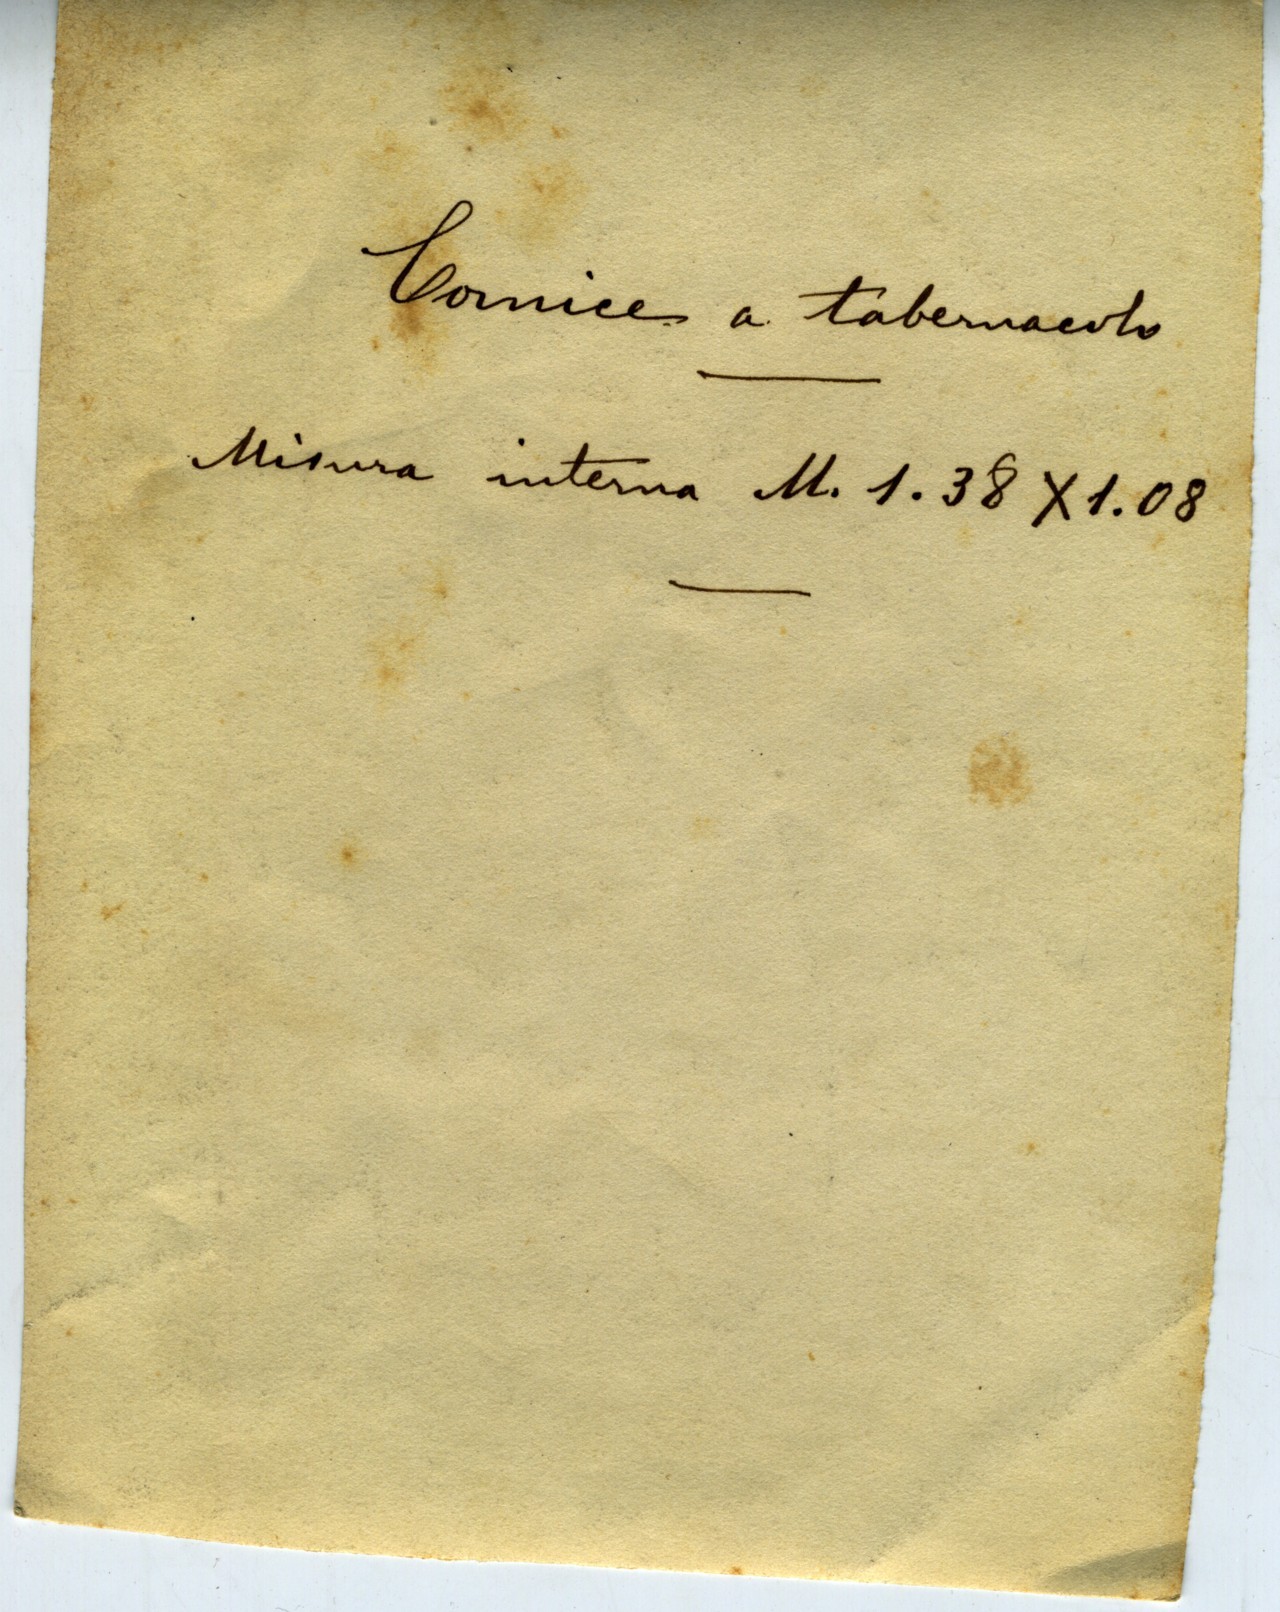 Cornice a tabernacolo
Misura interna M. 1.38 X 1.08